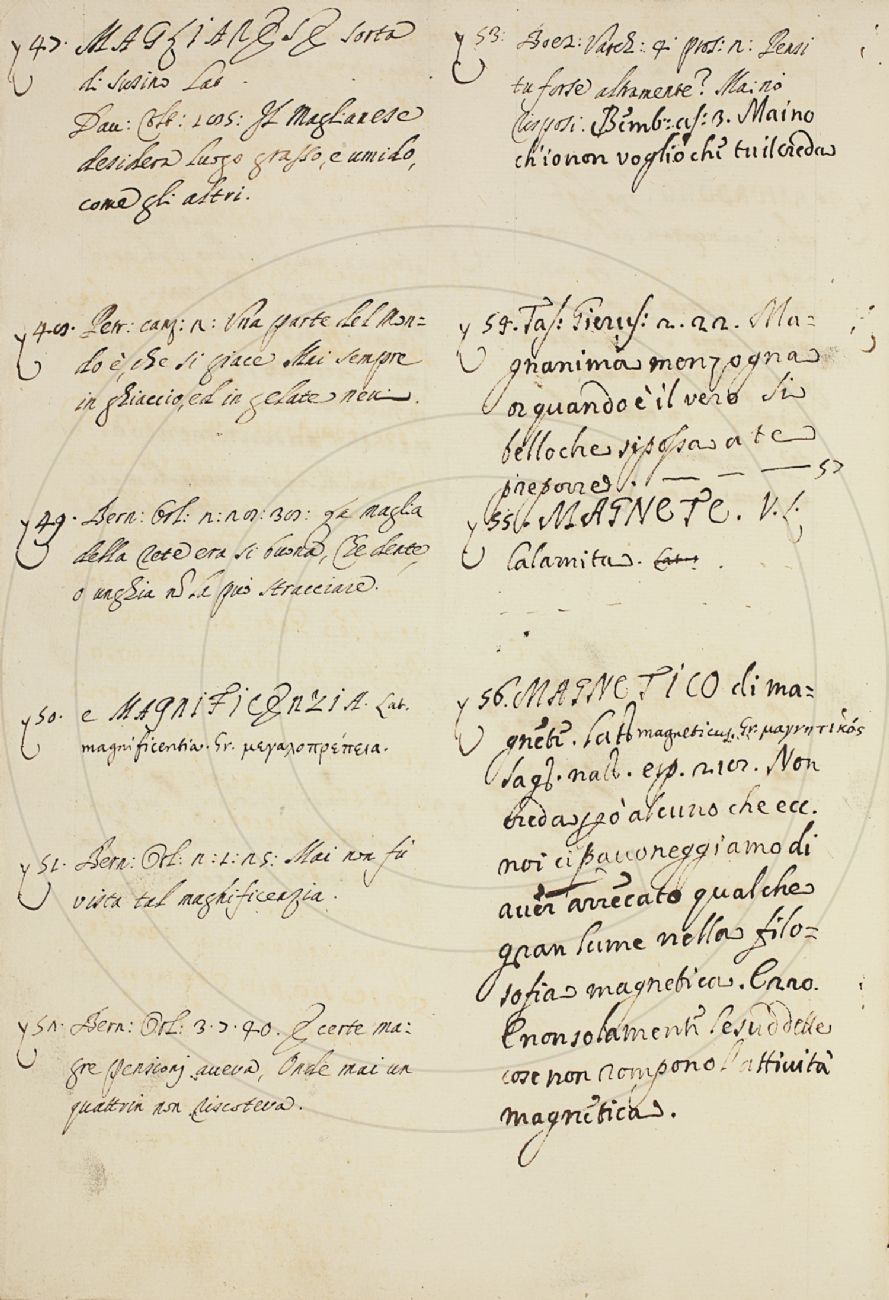 47. MAGLIANESE sorta
di susino Lat.
Dav: Colt: 185: Il Maglianese
desidera luogo grasso, e umido,
come gli altri.
48. Petr: canz: 2: Una parte del mon=
do è, che si giace Mai sempre
in ghiaccio, ed in gelate nevi.
49. Bern: Orl: 2: 28: 38: La maglia
della rete era sì buona, Che dente,
o unghia nõ la può stracciare.
50. e MAGNIFICENZIA. Lat.
magnificentia. Gr. μεγαλοπρέπεια.
51. Bern: Orl: 2: 1: 25: Mai non fu
vista tal maghificenzia.
52. Bern: Orl: 3. 7. 40. E certe ma:
gre pensionj aveva, Onde mai un
quattrin non riscoteva.
53: Boez: Varch: 4: pros: 2: Pensi
tu forse altramente? Mainò
risposi. Bemb: as: 3. Maino
ch'io non voglio che tu il creda
54. Tas: Gierus: 2. 22. Ma=
gnanima menzogna
or quando è il vero Si
bello che si possa a te
preporre. 57
55. MAGNETE. V. l.
Calamita. Lat:
56. MAGNETICO di ma=
gnete. Lat. magneticus. Gr. μαγνητικός
Sag. nat. esp. 218. Non
creda però alcuno che ecc.
noi ci pavoneggiamo di
aver arrecato qualche
gran lume nella filo=
sofia magnetica. E 220.
E non solamente le suddette
cose non rompono l'attività
magnetica.